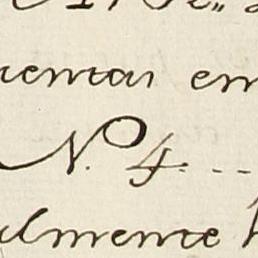 uentas en
N.º 4...
almente